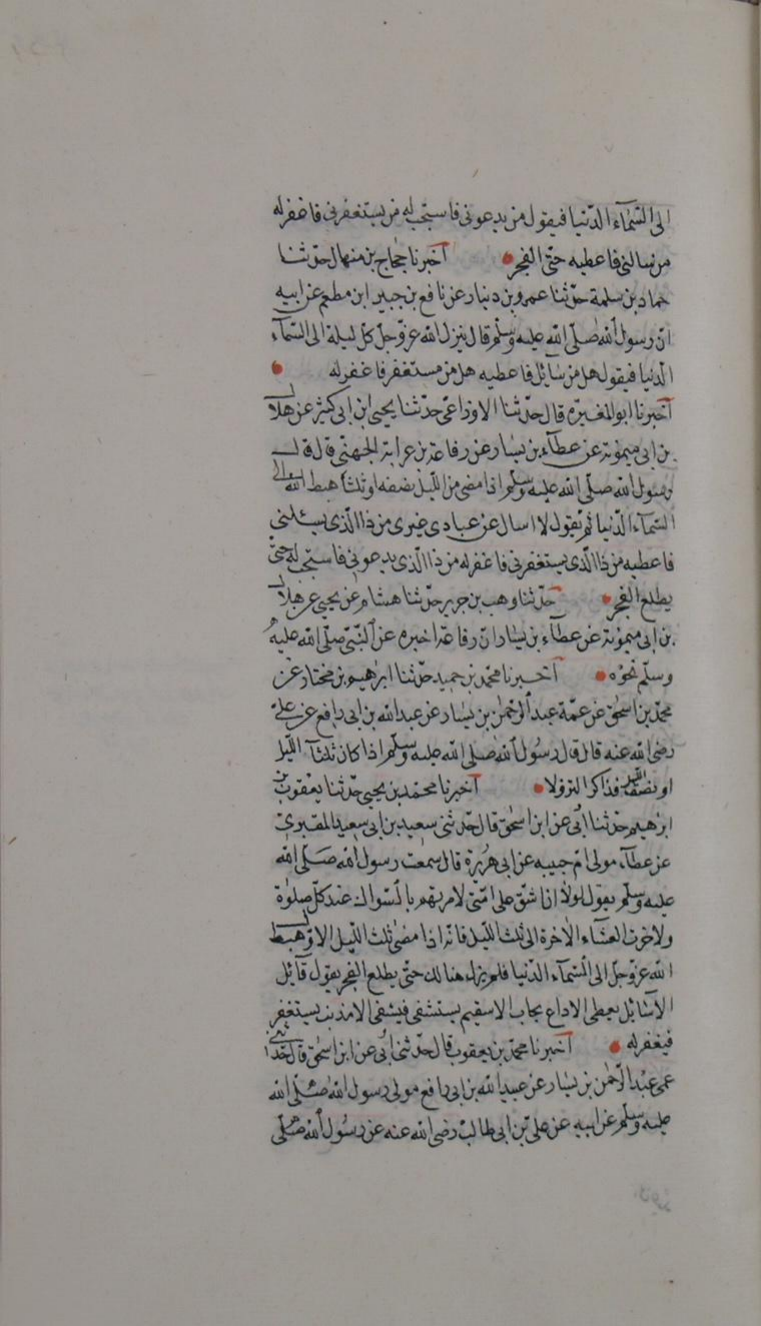 الى السّمآء الدّنيا فيقول من يدعونى فاستجب له من يستغفرنى فاغفرله
من يسالنى فاعطيه حتّى الفجر اخبرنا حجاج بن منهال حدّثنا
حماد بن سلمة حدّثنا عمرو بن دينار عن نافع بن جبير ابن مطعم عن ابيه
انّ رسول الله صلّى الله عليه وسلّم قال ينزل الله عزّوجلّ كلّ ليلة الى السّمآء
الدّنيا فيقول هل من سائل فاعطيه هل من مستغفر فاغفرله
اخبرنا ابوالمغيرة قال حدّثنا الاوزاعى حدّثنا يحيى ابن ابى كثير عن هلال
بن ابى ميمونة عن عطآء بن يسار عن رفاعة بن عرابة الجهنّى قال قال
رسول الله صلّى الله عليه وسلّم اذا مضى من اللّيل نصفه او ثلثا هبط الله الى
السّمآء الدّنيا ثم يقول لا اسال عن عبادى غيرى من ذا الّذى يسئلنى
فاعطيه من ذا الّذى يستغفرنى فاغفرله من ذا الّذى يدعونى فاستجب له حتّى
يطلع الفجر حدّثنا وهب بن جرير حدّثنا هشام عن يحيى عن هلال
بن ابى ميمونة عن عطآء بن يسار انّ رفاعة اخبره عن النّبىّ صلّى الله عليه
وسلّم نحوه اخبرنا محمّد بن حميد حدّثنا ابرهيم بن مختار عن
محمّد بن اسحٰق عن عمّه عبد الرّحمٰن بن يسار عن عبدالله بن ابى رافع عن علىّ
رضى الله عنه قال قال رسول الله صلى الله عليه وسلّم اذا كان ثلثآ اللّيل
او نصف اللّيل فذاكر النزولا اخبرنا محمد بن يحيى حدّثنا يعقوب بن
ابرهيم حدّثنا ابى عن ابن اسحٰق قال حدّثنى سعيد بن ابى سعيد المقبرى
عن عطآء مولى امّ حبيبه عن ابى هريرة قال سمعت رسول الله صَلّى الله
عليه وسلّم يقول لولا ان اشقّ على امّتى لامرتهم بالسّواك عند كلّ صلوٰة
ولاخرت العشآء الاخرة الى ثلث اللّيل فانّه اذا مضى ثلث اللّيل الاوّل هبط
الله عزّوجلّ الى السّمآء الدّنيا فلم يزل هنالك حتّى يطلع الفجر يقول قائل
الا سائل يعطى الا داع يجاب الا سقيم يستشفى فيشفى الا مذنب يستغفر
فيغفرله اخبرنا محمّد بن يعقوب قال حدّثنى ابى عن ابن اسحٰق قال حدّثنى
عمى عبد الرّحمٰن بن يسار عن عبيد الله بن ابى رافع مولى رسول الله صلّى الله
عليه وسلّم عن ابيه عن على بن ابى طالب رضى الله عنه عن رسول الله صلّى